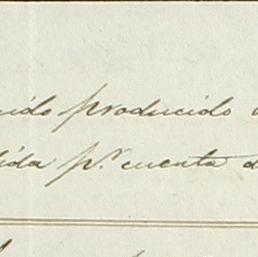 uido producido
ida pr. cuenta d